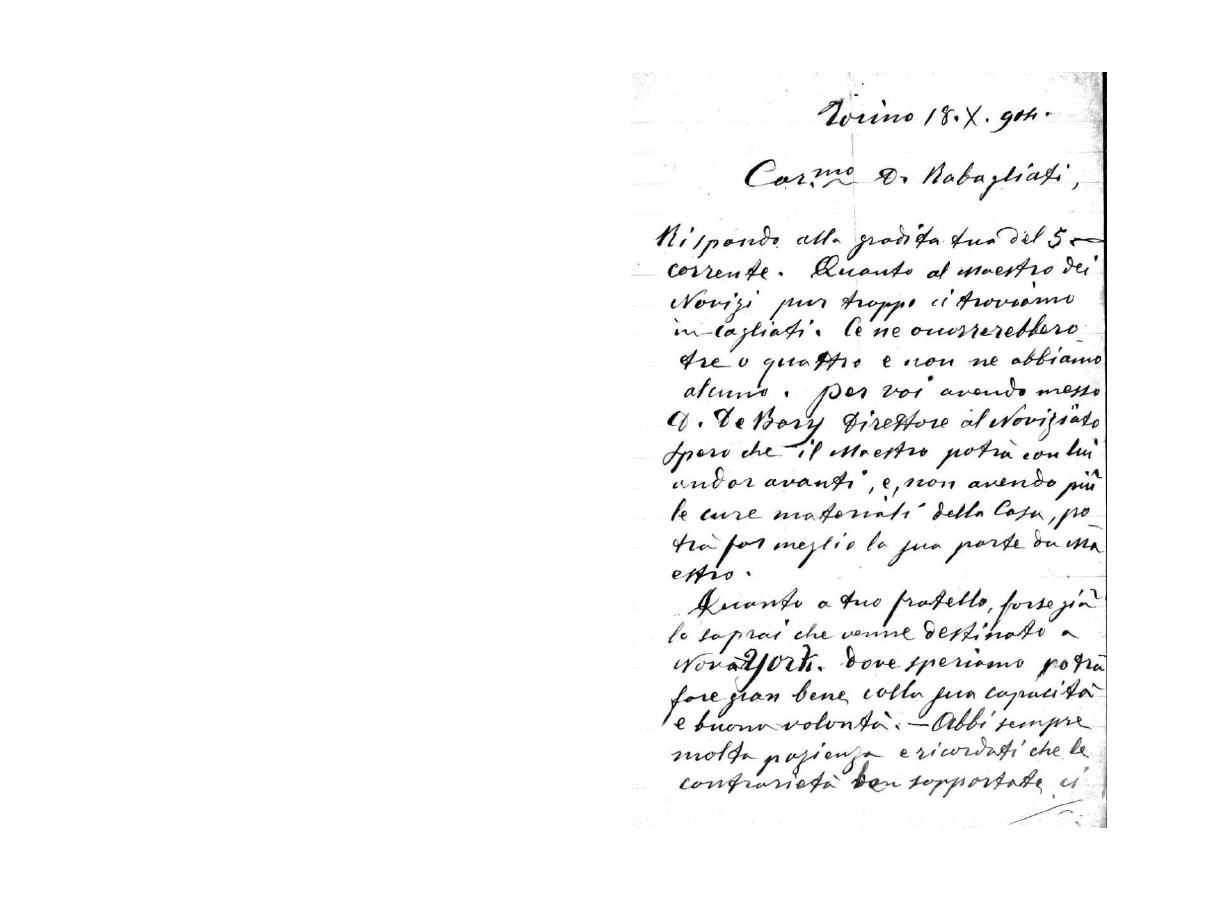 Torino 18. X. 904.
Car.mo D. Rabagliati,
Rispondo alla gradita tua del 5
corrente. Quanto al Maestro dei
Novizi pur troppo ci troviamo
incagliati. Ce ne occorrerebbero
tre o quattro e non ne abbiamo
alcuno. Per voi avendo messo
D. De Bary Direttore al Noviziato
spero che il Maestro potrà con lui
andar avanti, e, non avendo più
le cure materiali della Casa, po
trà far meglio la sua parte da Ma
estro.
Quanto a tuo fratello, forse già
lo saprai che venne destinato a
Nova York. dove speriamo potrà
fare gran bene colla sua capacità
e buona volontà. — Abbi sempre
molta pazienza e ricordati che le
contrarietà ben sopportate ci